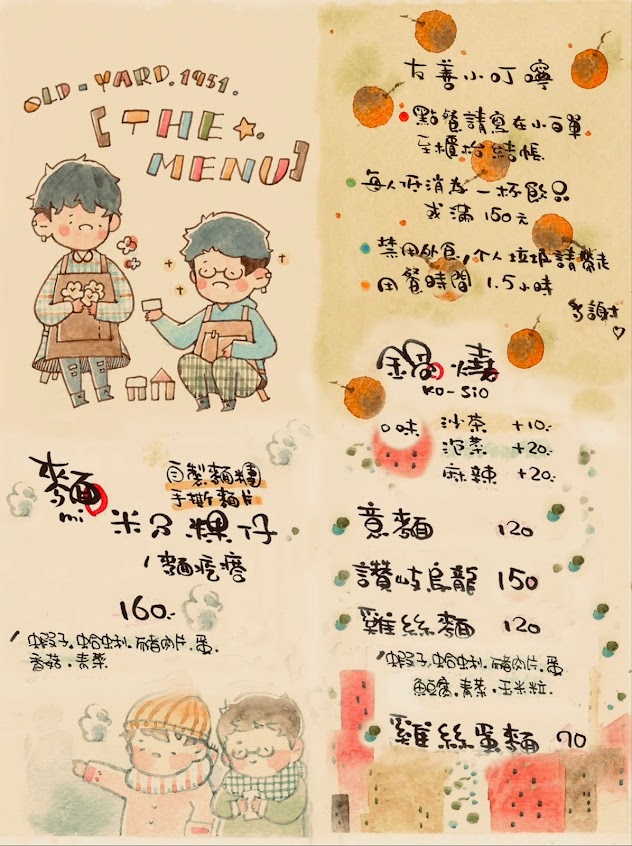 OLD-YARD.1931.
[THE★.
MENU]
友善小叮嚀
點餐請寫在小白單
至櫃枱結帳
每人低消為一杯飲品
或滿150元
禁用外食,個人垃圾請帶走
用餐時間 1.5小時
多謝
鍋燒
KO-SIO
口味 沙茶 +10.-
泡菜 +20.-
麻辣 +20.-
意麵 120
讚岐烏龍 150
雞絲麵 120
蝦子.蛤蜊.豬肉片.蛋
魚窩.青菜.玉米粒.
雞絲蛋麵 70
麵
mi
自製麵糰
手撕麵片
米ㄋ粿仔
麵疙瘩
160.-
蝦子.蛤蜊.豬肉片.蛋.
香菇.青菜